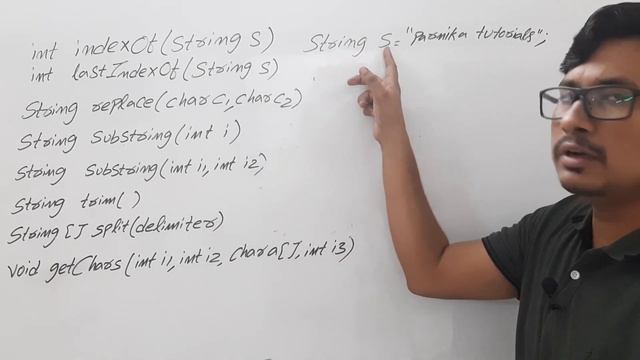 int indexOf(String S)
int lastIndexOf(String S)
String replace(char c1, char c2)
String Substring(int i)
String Substring(int i1, int i2)
String trim( )
String [] split(delimiter)
void getChars(int i1, int i2, char a[], int i3)
String S = "Parnika tutorials";